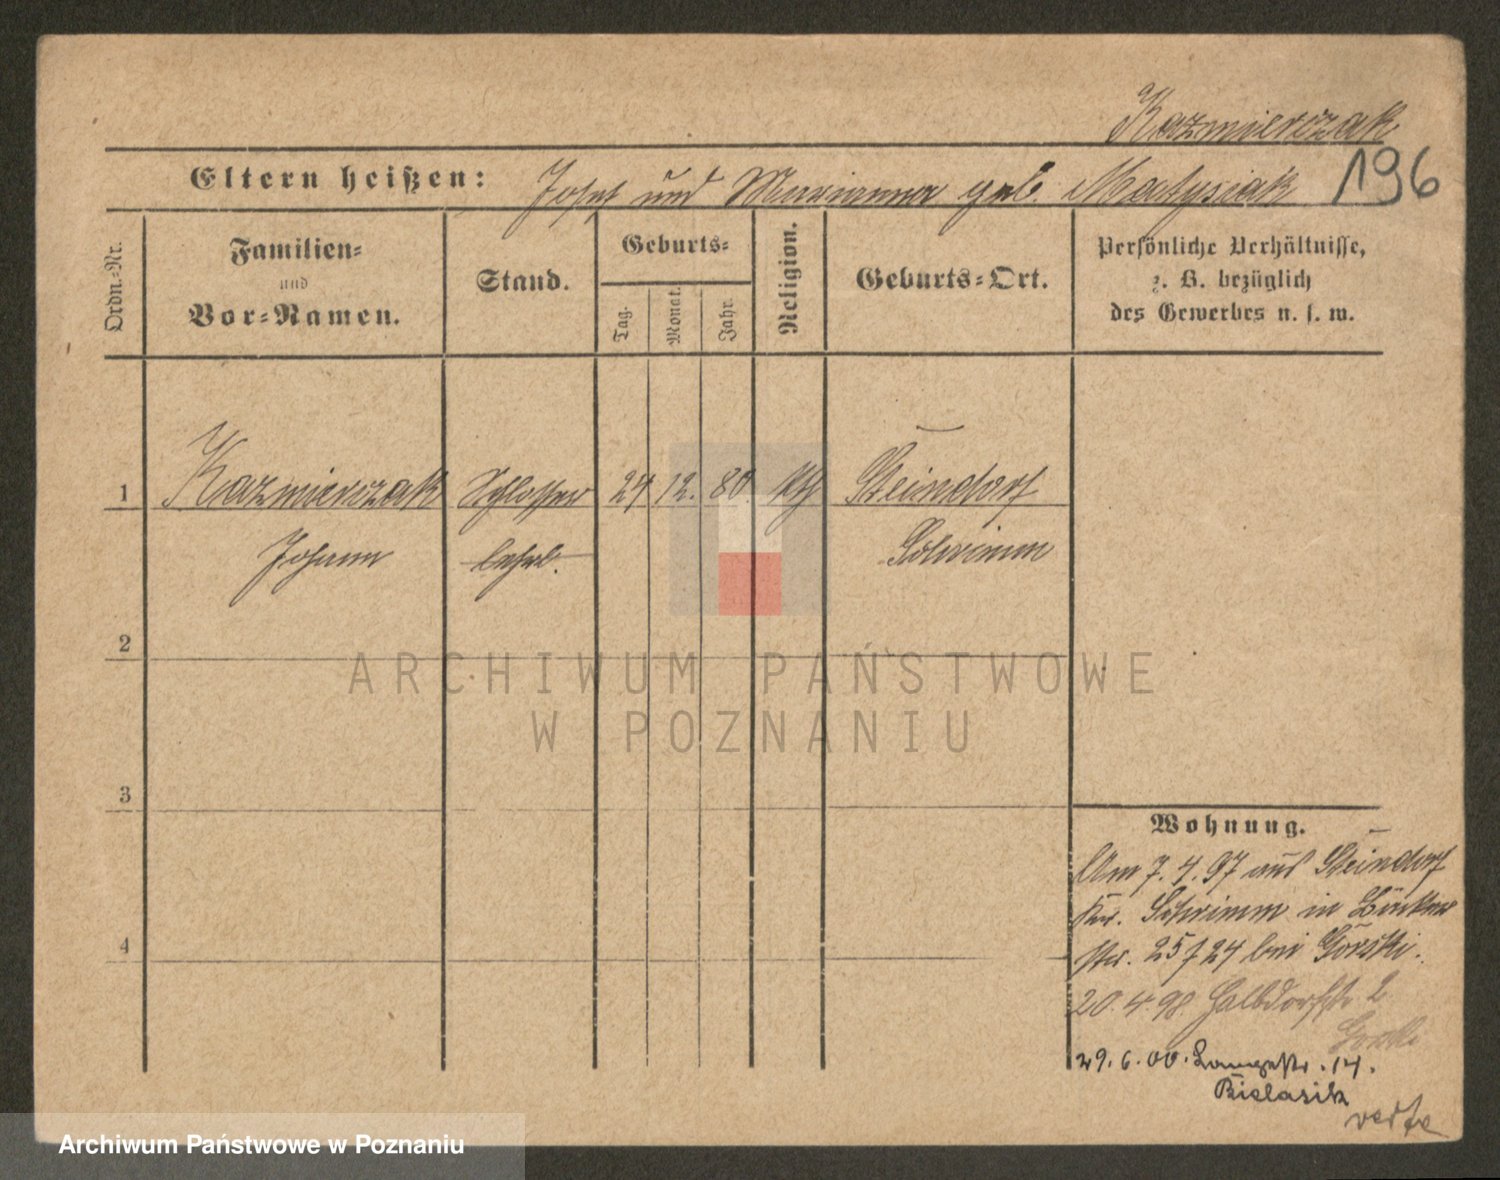 Kazmierczak
Eltern heißen: Josef und Marianna geb. Matysiak 196
Ordn.-Nr.
Familien-
und
Vor-Namen.
Stand.
Geburts-
Tag.
Monat.
Jahr.
Religion.
Geburts-Ort.
Persönliche Verhältnisse,
z. B. bezüglich
des Gewerbes u. s. w.
1 Kazmierczak Schlosser 24 12. 80. kth Steindorf
Johann lehrl. Schrimm
2
3
4
Wohnung.
Am 7. 4. 97 aus Steindorf
Kr. Schrimm in
str. 25/24 bei Gorski.
20.4.98 Halbdorfstr 2
Gorski
29.6.00. Langestr. 14.
Bielasik
verte
ARCHIWUM PAŃSTWOWE
W POZNANIU
Archiwum Państwowe w Poznaniu